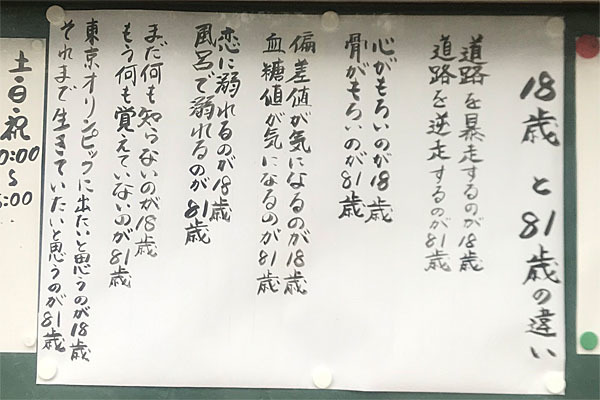 18歳と81歳の違い
道路を暴走するのが18歳
道路を逆走するのが81歳
心がもろいのが18歳
骨がもろいのが81歳
偏差値が気になるのが18歳
血糖値が気になるのが81歳
恋に溺れるのが18歳
風呂で溺れるのが81歳
まだ何も知らないのが18歳
もう何も覚えていないのが81歳
東京オリンピックに出たいと思うのが18歳
それまで生きていたいと思うのが81歳
土・日・祝
0:00
～
:00